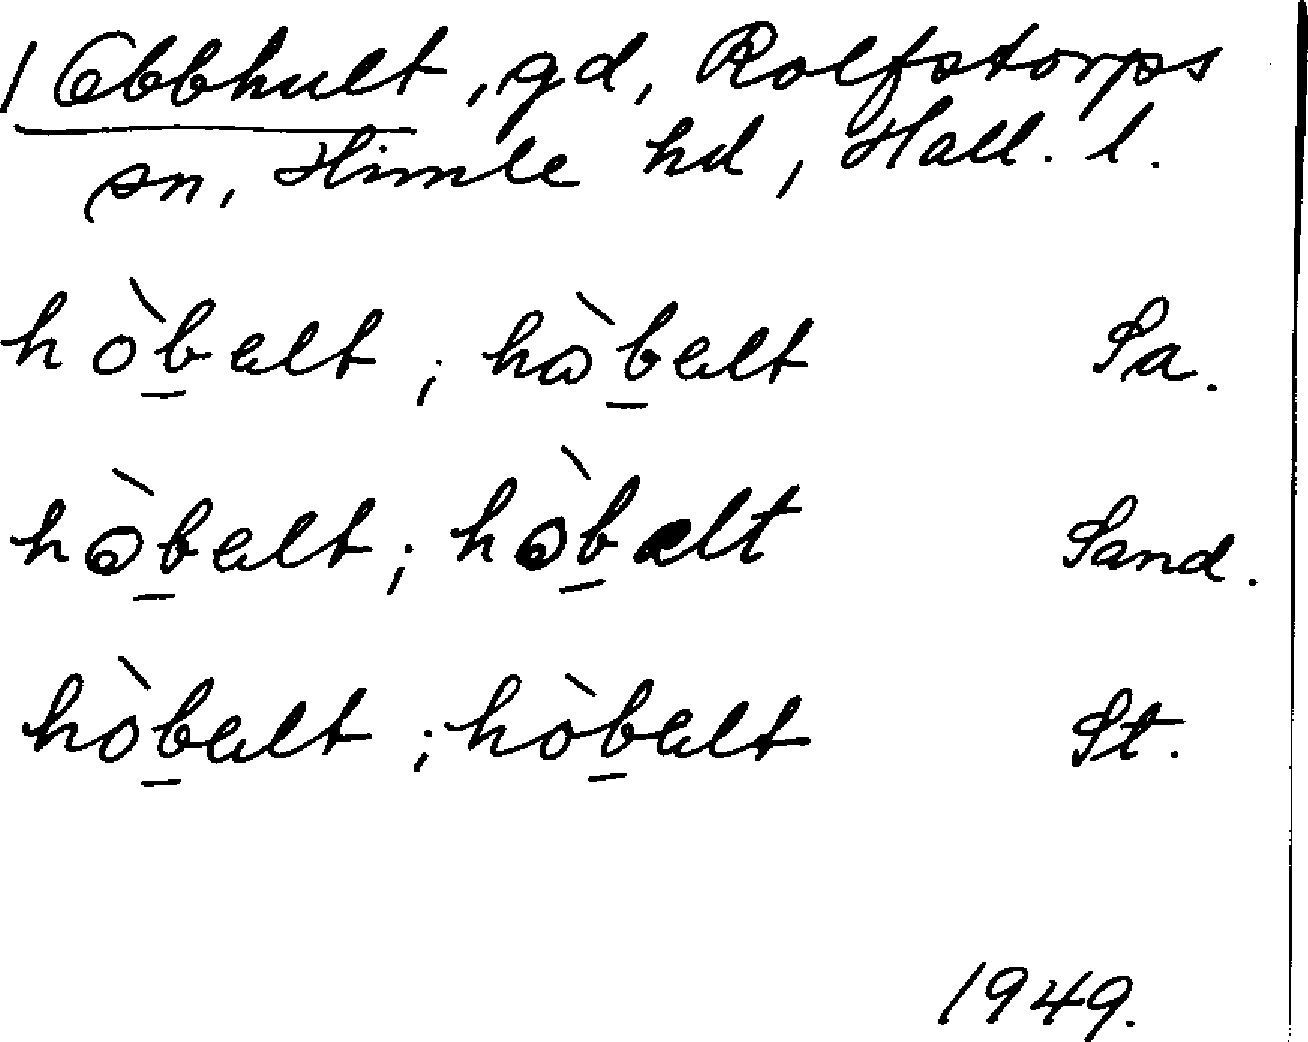 1 Obbhult, gd, Rolfstorps
sn, Himle hd, Hall. l.
hòb̲ɐlt; hɷ̀b̲ɐlt Sa.
hɷ̀b̲ɐlt; hɷ̀b̲ɐlt Sand.
hòb̲ɐlt; hòb̲ɐlt St.
1949.